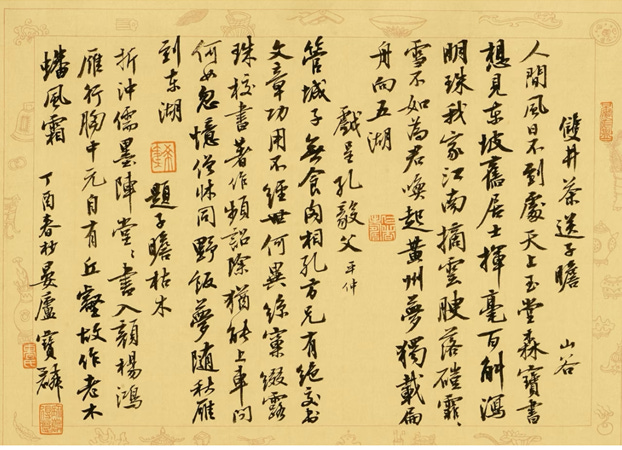 雙井茶送子瞻 山谷
人間風日不到處天上玉堂森寶書
想見東坡舊居士揮毫百斛瀉
明珠我家江南摘雲腴落磑霏〻
雪不如為君喚起黃州夢獨載扁
舟向五湖
戲呈孔毅父 平仲
管城子無食肉相孔方兄有絕交書
文章功用不經世何異絲窠綴露
珠校書著作頻詔除猶能上車問
何如忽憶僧床同野飯夢隨秋雁
到東湖
題子瞻枯木
折沖儒墨陣堂〻書入顏楊鴻
雁行胸中元自有丘壑故作老木
蟠風霜 丁酉春杪 廬寶麟